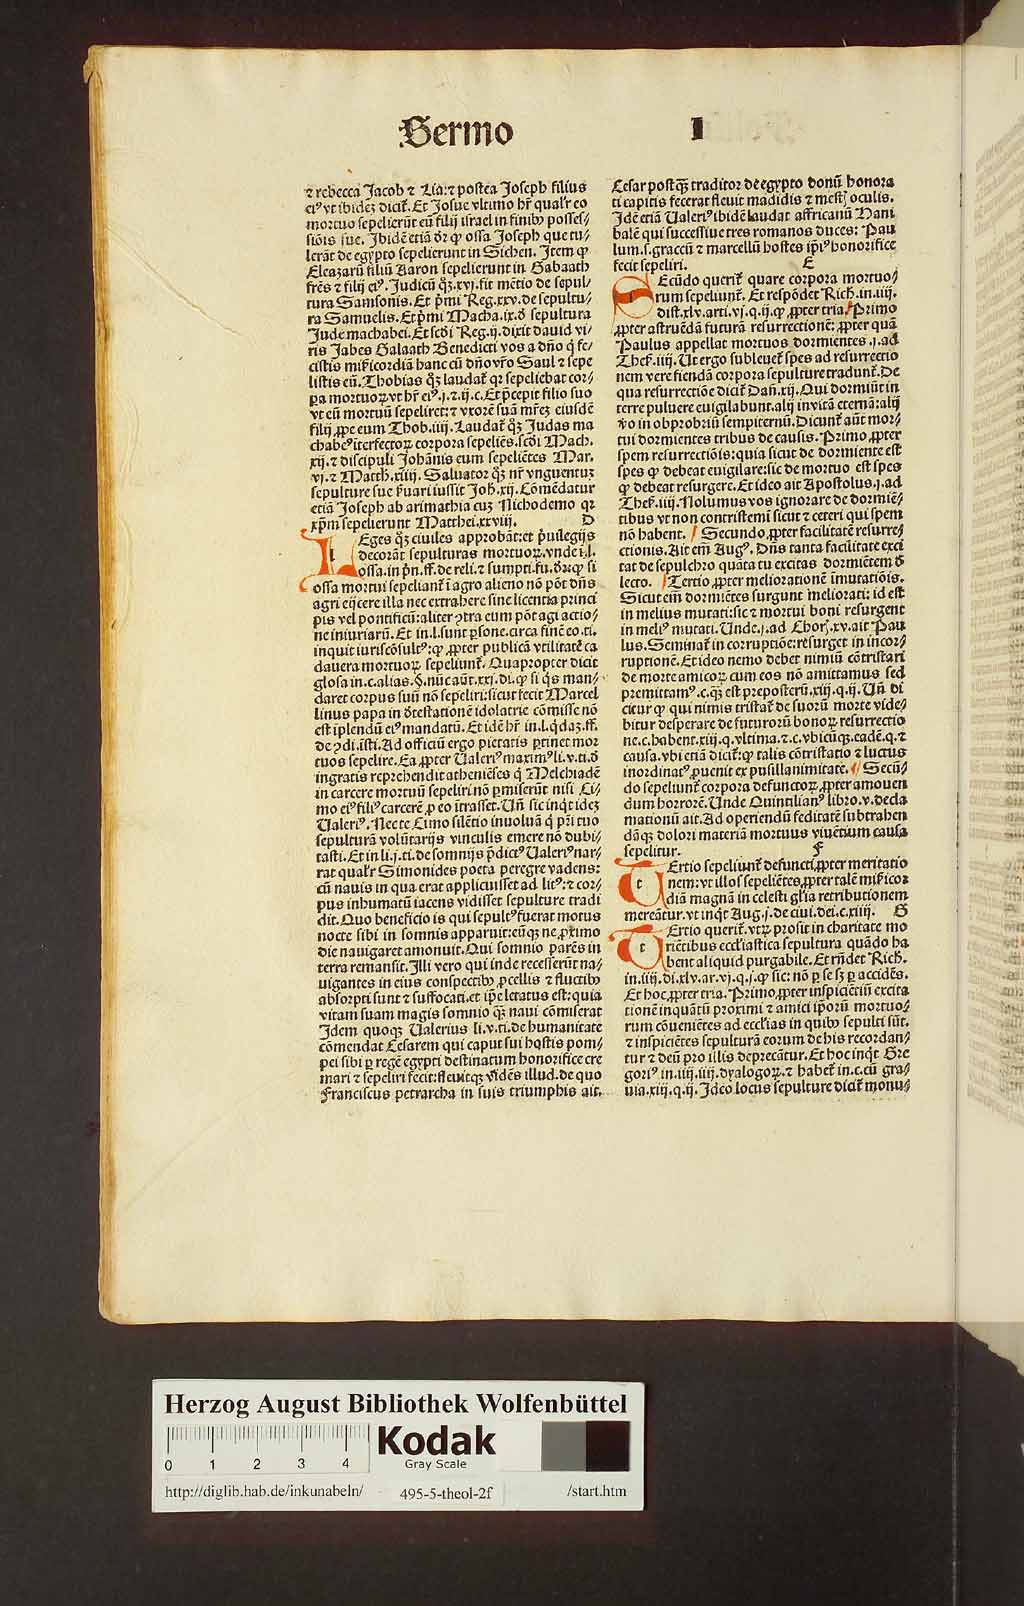 Sermo
I
⁊ rebecca Jacob ⁊ Lia: ⁊ postea Joseph filius
eiꝰ vt ibidez dicit̃. Et Josue vltimo hr̃ qual'r eo
mortuo sepelierũt eũ filij israel in finibꝰ posses-
siõis sue. Ibidẽ etiã dr̃ ꝙ ossa Joseph que tu-
lerãt de egypto sepelierunt in Sichen. Item ꝙ
Eleazarũ filiũ Aaron sepelierunt in Gabaath
frẽs ⁊ filij eiꝰ. Judicũ qz̃.xvj.fit mẽtio de sepul-
tura Samsonis. Et p̃mi Reg.xxv.de sepultu-
ra Samuelis. Et p̃mi Macha.ix.d̃ sepultura
Jude machabei. Et scd̃i Reg.ij.dixit dauid vi-
ris Jabes Galaath Benedicti vos a dño q̃ fe-
cistis misericordiã hanc cũ dño vr̃o Saul ⁊ sepe
listis eũ. Thobias qz̃ laudat̃ qꝛ sepeliebat cor-
pa mortuoꝝ vt hr̃ eiꝰ.j.⁊.ij.c. Et p̃cepit filio suo
vt eũ mortuũ sepeliret: ⁊ vxorẽ suã mr̃ez eiusdẽ
filij ꝓpe eum Thob.iiij. Laudat̃ qz̃ Judas ma
chabeꝰ iterfectoꝝ corpora sepeliẽs.scd̃i Mach.
xij. ⁊ discipuli Johãnis eum sepeliẽtes Mar.
vj. ⁊ Matth.xiiij. Saluator qz̃ nr̃ vnguentuz
sepulture sue ẜuari iussit Joh.xij. Cõmẽdatur
etiã Joseph ab arimathia cuz Nichodemo qꝛ
xp̃m sepelierunt Matthei.xxviij. D
LEges qz̃ ciuiles approbãt: et p̃uilegijs
decorãt sepulturas mortuoꝝ.vnde ĩ.l.
ossa.in p̃n.ff.de reli.⁊ sumpti.fu.dr̃: ꝙ si
ossa mortui sepeliant̃ ĩ agro alieno nõ põt dñs
agri eijcere illa nec extrahere sine licentia princi
pis vel pontificũ: aliter ɔtra eum põt agi actio-
ne iniuriarũ. Et in.l.sunt ꝑsone.circa finẽ eo.ti.
inquit iuriscõsultꝰ: ꝙ ꝓpter publicã vtilitatẽ ca
dauera mortuoꝝ sepeliunt̃. Quapropter dicit
glosa in.c.alias.§.nũc aũt.xxj.di.ꝙ si qs̃ man-
daret corpus suũ nõ sepeliri: sicut fecit Marcel
linus papa in d̃testationẽ idolatrie cõmisse nõ
est iplendũ eiꝰ mandatũ. Et idẽ hr̃ in.l.qd̃az.ff.
de ɔdi.ĩsti. Ad officiũ ergo pietatis ꝑtinet mor
tuos sepelire. Ea ꝓpter Ualeriꝰ maximꝰ li.v.ti.d̃
ingratis reprehendit atheniẽses q̃ Melchiadẽ
in carcere mortuũ sepeliri nõ ꝑmiserũt nisi Ci-
mo eiꝰ filiꝰ carcerẽ ꝓ eo ĩtrasset. Uñ sic inq̃t idez
Ualeriꝰ. Nec te Cimo silẽtio inuoluã q̃ pr̃i tuo
sepulturã volũtarijs vinculis emere nõ dubi-
tasti. Et in li.j.ti.de somnijs p̃dictꝰ Ualeriꝰ nar-
rat qual'r Simonides poeta peregre vadens:
cũ nauis in qua erat applicuisset ad litꝰ: ⁊ cor-
pus inhumatũ iacens vidisset sepulture tradi
dit. Quo beneficio is qui sepultꝰ fuerat motus
nocte sibi in somnis apparuit: eũqz ne ꝓximo
die nauigaret amonuit. Qui somnio parẽs in
terra remansit. Illi vero qui inde recesserũt na-
uigantes in eius conspectibꝰ ꝓcellis ⁊ fluctibꝰ
absorpti sunt ⁊ suffocati.et ip̃e letatus est: quia
vitam suam magis somnio qz̃ naui cõmiserat
Idem quoqz Ualerius li.v.ti.de humanitate
cõmendat Cesarem qui caput sui hostis pom-
pei sibi ꝑ regẽ egypti destinatum honorifice cre
mari ⁊ sepeliri fecit: fleuitqz vidẽs illud. de quo
Franciscus petrarcha in suis triumphis ait.
Cesar postqz̃ traditor de egypto donũ honora
ti capitis fecerat fleuit madidis ⁊ mestis oculis.
Idẽ etiã Ualeriꝰ ibidẽ laudat affricanũ Hani
balẽ qui successiue tres romanos duces: Pau
lum.s.graccũ ⁊ marcellũ hostes ip̃iꝰ honorifice
fecit sepeliri. E
SEcũdo querit̃ quare corpora mortuo-
rum sepeliunt̃. Et respõdet Rich.in.iiij.
dist.xlv.arti.vj.q.ij.ꝙ ꝓpter tria. Primo
ꝓpter astruẽdã futurã resurrectionẽ: ꝓpter quã
Paulus appellat mortuos dormientes.j.ad
Thes.iiij. Ut ergo subleuet̃ spes ad resurrectio
nem vere fiendã corpora sepulture tradunt̃. De
qua resurrectiõe dicit̃ Dañ.xij. Qui dormiũt in
terre puluere euigilabunt.alij in vitã eternã: alij
ṽo in obprobriũ sempiternũ. Dicunt̃ aũt mor-
tui dormientes tribus de causis. Primo ꝓpter
spem resurrectiõis: quia sicut de dormiente est
spes ꝙ debeat euigilare: sic de mortuo est spes
ꝙ debeat resurgere. Et ideo ait Apostolus.j.ad
Thes.iiij. Nolumus vos ignorare de dormiẽ-
tibus vt non contristemĩ sicut ⁊ ceteri qui spem
nõ habent. Secundo ꝓpter facilitatẽ resurre-
ctionis. Ait em̃ Augꝰ. Dñs tanta facilitate exci
tat de sepulchro quãta tu excitas dormiẽtem d̃
lecto. Tertio ꝓpter meliorationẽ ĩmutatiõis.
Sicut em̃ dormiẽtes surgunt meliorati: id est
in melius mutati: sic ⁊ mortui boni resurgent
in meliꝰ mutati. Unde.j.ad Chor.xv.ait Pau
lus. Seminat̃ in corruptiõe: resurget in incor-
ruptionẽ. Et ideo nemo debet nimiũ cõtristari
de morte amicoꝝ cum eos nõ amittamus sed
premittamꝰ.c.qz̃ est preposterũ.xiij.q.ij. Uñ di
citur ꝙ qui nimis tristat̃ de suorũ morte vide-
bitur desperare de futurorũ bonoꝝ resurrectio
ne.c.habent.xiij.q.vltima.⁊.c.vbicũqz.eadẽ.q.⁊
causa.vbi etiã dicit̃: ꝙ talis cõtristatio ⁊ luctus
inordinatꝰ ꝓuenit ex pusillanimitate. Secũ-
do sepeliunt̃ corpora defunctoꝝ ꝓpter amouen
dum horrorẽ. Unde Quintilianꝰ libro.v.decla
mationũ ait. Ad operiendũ feditatẽ subtrahen
dãqz dolori materiã mortuus viuẽtium causa
sepelitur. F
TErtio sepeliunt̃ defuncti ꝓpter meritatio
nem: vt illos sepeliẽtes ꝓpter talẽ miẽicor
diã magnã in celesti gl'ia retributionem
mereãtur.vt inq̃t Aug.j.de ciui.dei.c.xiiij. G
TErtio querit̃.vtꝝ prosit in charitate mo
riẽtibus eccl'iastica sepultura quãdo ha
bent aliquid purgabile. Et rñdet Rich.
in.iiij.di.xlv.ar.vj.q.j.ꝙ sic: nõ ꝑ se sꝫ ꝑ accidẽs.
Et hoc ꝓpter tria. Primo ꝓpter inspiciẽtiũ excita
tionẽ inquãtũ proximi ⁊ amici ip̃orũ mortuo-
rum cõueniẽtes ad eccl'ias in quibꝰ sepulti sũt.
⁊ inspiciẽtes sepulturã eorum de his recordan-
tur ⁊ deũ pro illis deprecãtur. Et hoc inq̃t Gre
goriꝰ in.iiij.iiij.dyalogoꝝ.⁊ habet̃ in.c.cũ gra-
uia.xiij.q.ij. Ideo locus sepulture dicit̃ monu-
Herzog August Bibliothek Wolfenbüttel
0 1 2 3 4
Kodak
Gray Scale
http://diglib.hab.de/inkunabeln/ 495-5-theol-2f /start.htm